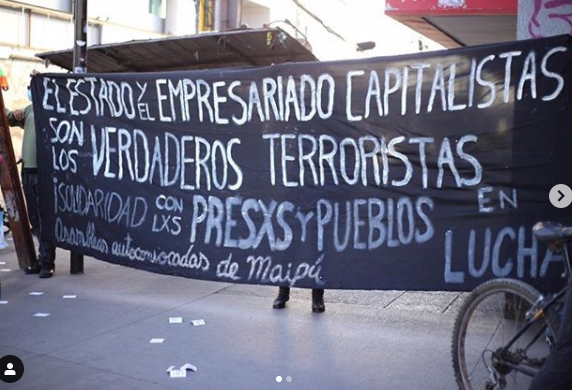 EL ESTADO Y EL EMPRESARIADO CAPITALISTAS
SON LOS VERDADEROS TERRORISTAS
¡SOLIDARIDAD CON LXS PRESXS Y PUEBLOS EN LUCHA
Asambleas autoconvocadas de Maipú